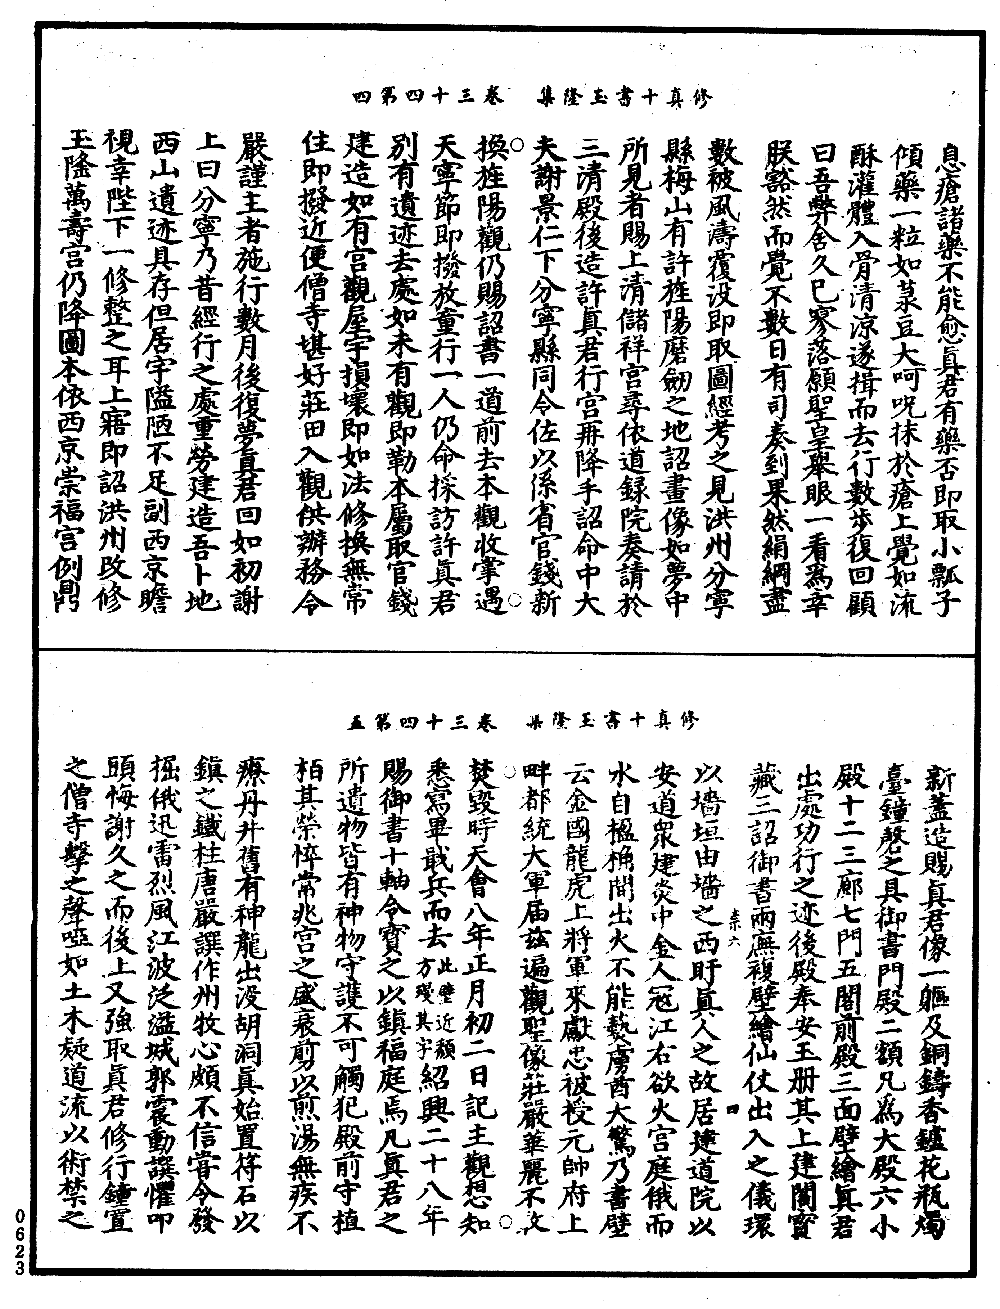 修真十書玉隆集　卷三十四第四
息瘡諸藥不能愈真君有藥否即取小瓢子
傾藥一粒如菉豆大呵呪抹於瘡上覺如流
酥灌體入骨清涼遂揖而去行數步復回顧
曰吾弊舍久已寥落願聖皇舉眼一看爲幸
朕豁然而覺不數日有司奏到果然絹綱盡
數被風濤覆没即取圖經考之見洪州分寧
縣梅山有許旌陽磨劒之地詔畫像如夢中
所見者賜上清儲祥宫尋依道録院奏請於
三清殿後造許真君行宫再降手詔命中大
夫謝景仁下分寧縣同令佐以係省官錢新
換旌陽觀仍賜詔書一道前去本觀收掌遇
天寧節即撥放童行一人仍命採訪許真君
别有遺迹去處如未有觀即勒本屬取官錢
建造如有宫觀屋宇損壞即如法修換無常
住即撥近便僧寺堪好莊田入觀供辦務令
嚴謹主者施行數月後復夢真君回如初謝
上曰分寧乃昔經行之處重勞建造吾卜地
西山遺迹具存但居宇隘陋不足副西京瞻
視幸陛下一修整之耳上寤即詔洪州改修
玉隆萬壽宫仍降圖本依西京崇福宫例鼎
修真十書玉隆集　卷三十四第五
新蓋造賜真君像一軀及銅鑄香鑪花瓶燭
臺鐘磬之具御書門殿二額凡爲大殿六小
殿十二三廊七門五閣前殿三面壁繪真君
出處功行之迹後殿奉安玉册其上建閣寶
藏三詔御書兩廡複壁繪仙仗出入之儀環
以墻垣由墻之西盱真人之故居建道院以
安道衆建炎中金人寇江右欲火宫庭俄而
水自楹桷間出火不能爇虜酋大驚乃書壁
云金國龍虎上將軍來獻忠被授元帥府上
畔都統大軍届兹遍觀聖像莊嚴華麗不敢
焚毁時天會八年正月初二日記主觀想知
悉寫畢戢兵而去此壁近頹方殘其字紹興二十八年
賜御書十軸令寶之以鎮福庭焉凡真君之
所遺物皆有神物守護不可觸犯殿前守植
栢其榮悴常兆宫之盛衰剪以煎湯無疾不
療丹井舊有神龍出没胡洞真始置符石以
鎮之鐵柱唐嚴譔作州牧心頗不信嘗令發
掘俄迅雷烈風江波泛溢城郭震動譔懼叩
頭悔謝久之而後上又強取真君修行鐘置
之僧寺擊之聲啞如土木疑道流以術禁之
0623